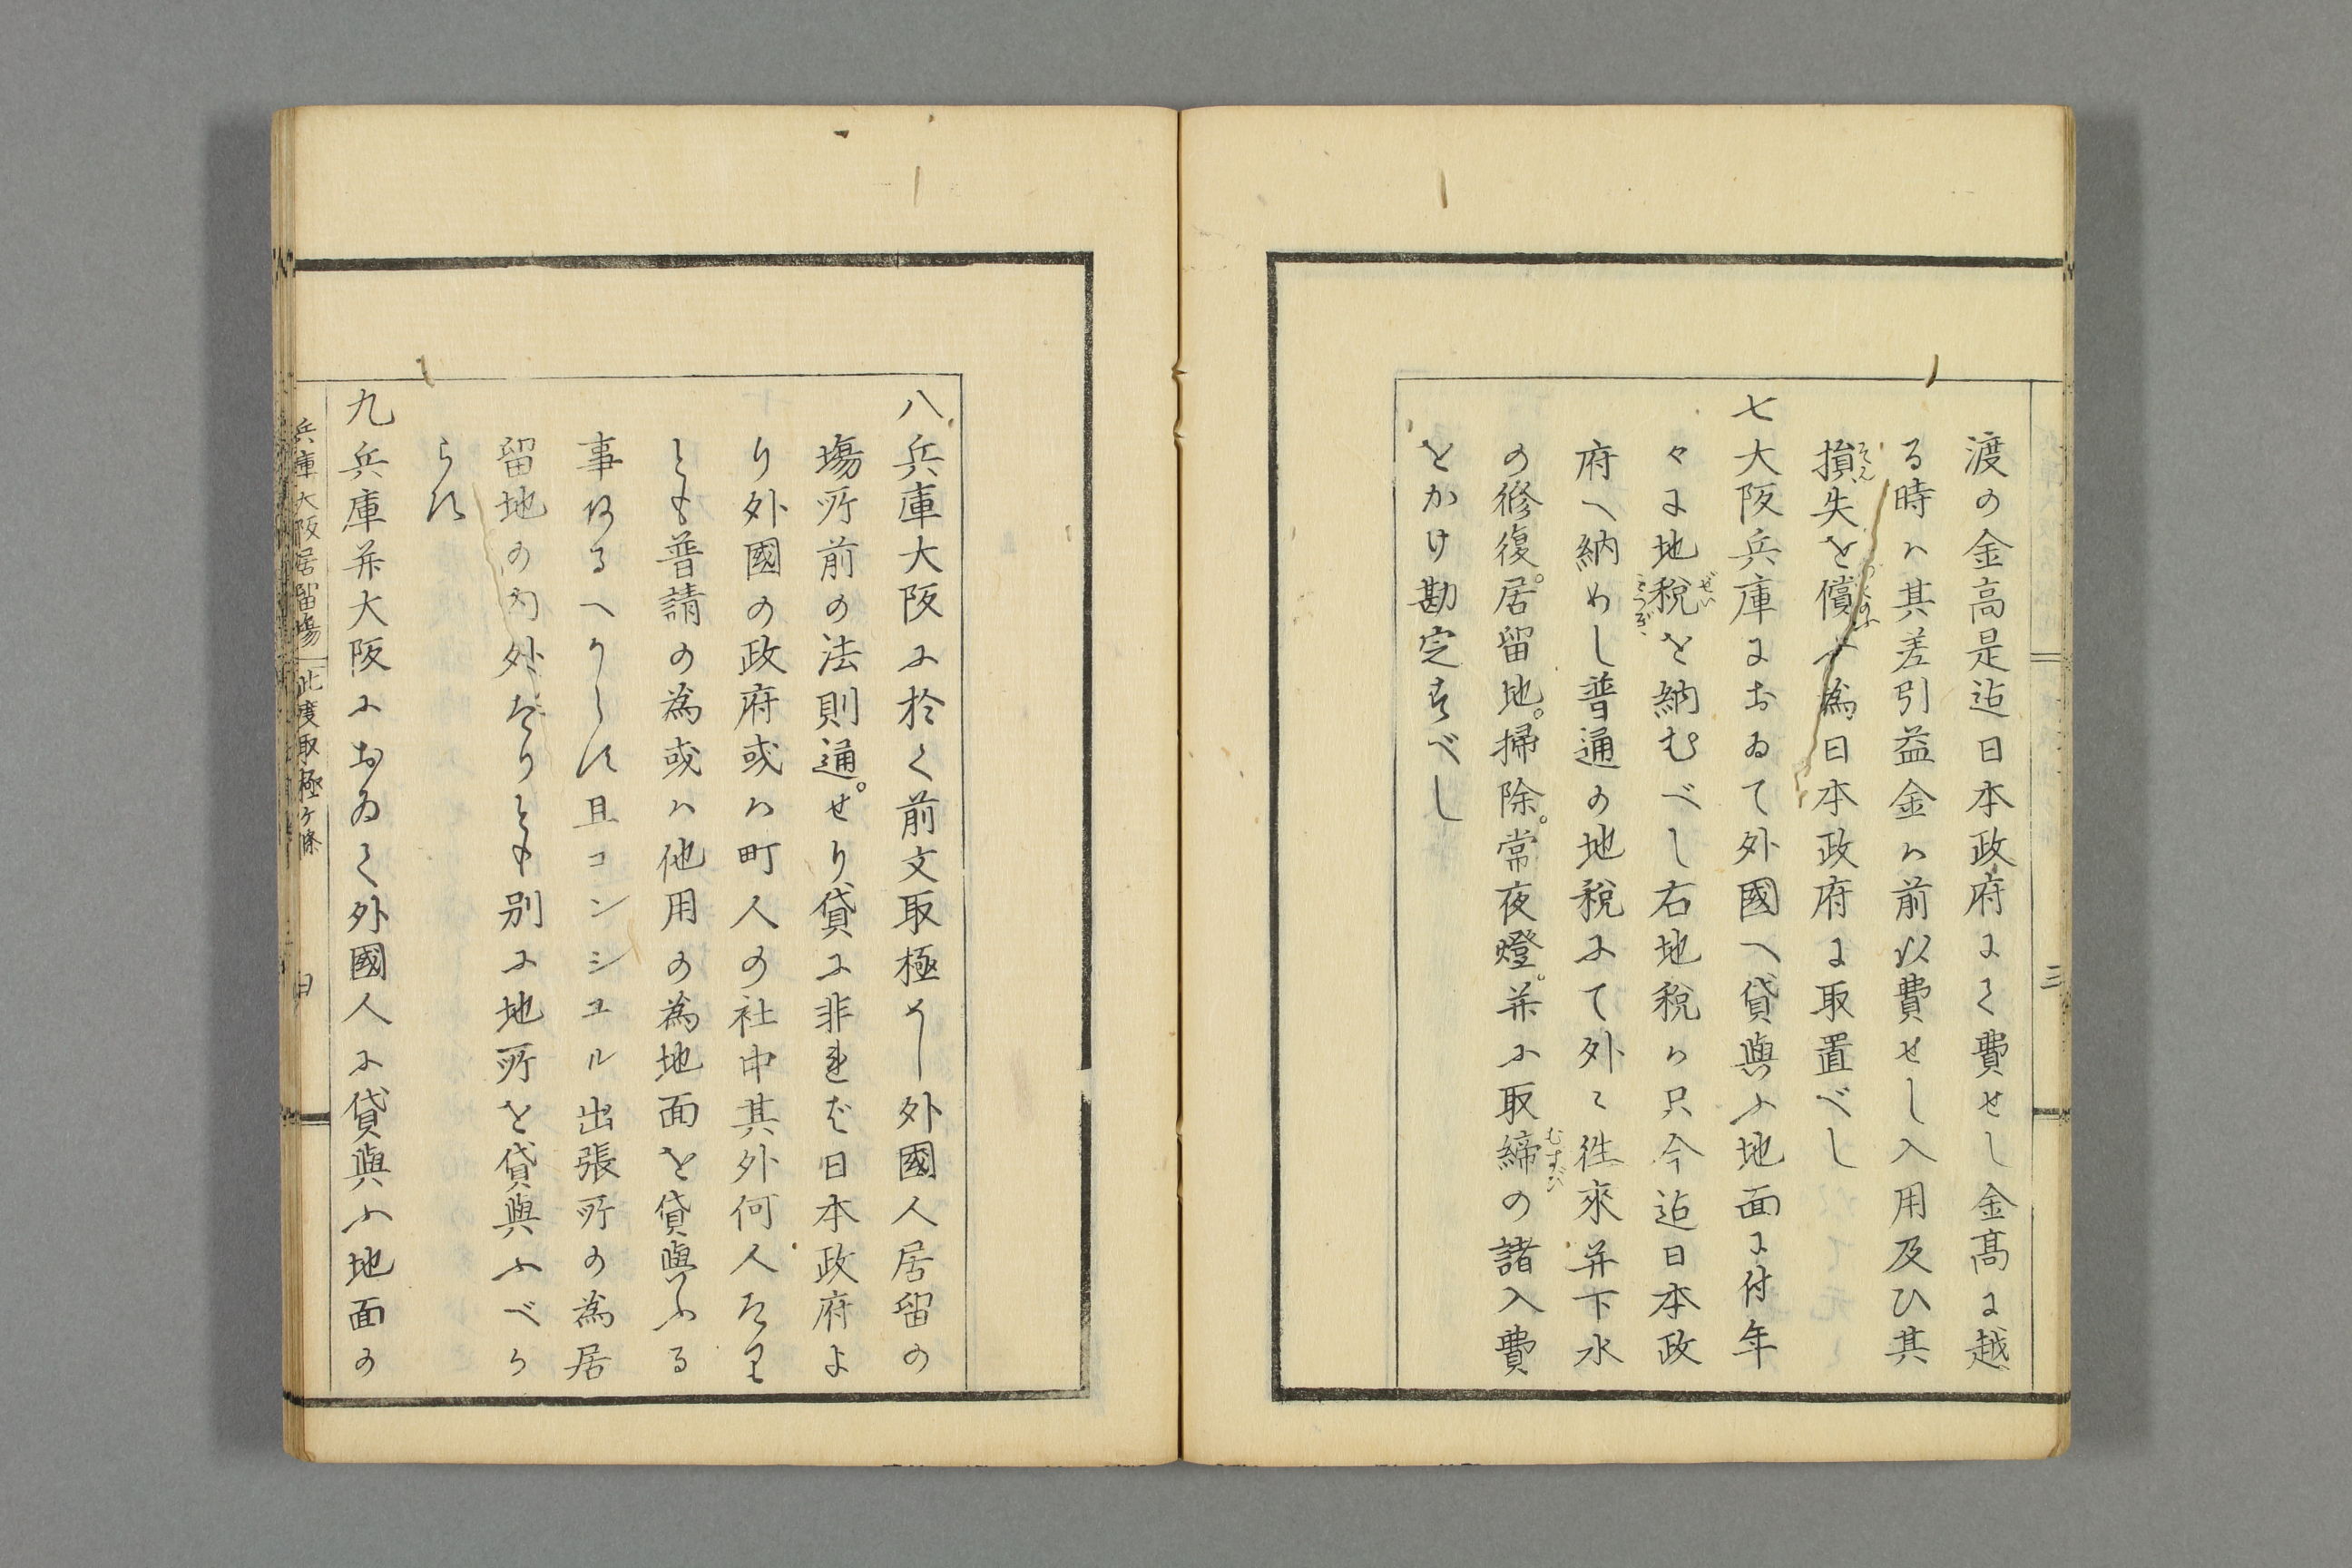 渡の金高是迠日本政府にて費せし金髙に越
る時ハ其差引益金ハ前以費せし入用及ひ其
損失を償ふ為日本政府に取置べし
七大阪兵庫におゐて外國へ貸與ふ地面に付年
々に地税を納むべし右地税ハ只今迠日本政
府へ納めし普通の地税にて外に徃來并下水
の修復。居留地。掃除。常夜燈。并に取締の諸入費
をかけ勘定すべし
八兵庫大阪に於て前文取極めし外國人居留の
塲所前の法則通。せり貸に非ればば日本政府よ
り外國の政府或ハ町人の社中其外何人たり
とも普請の為或ハ他用の為地面を貸與ふる
事あるへからす且コンシユル出張所の為居
留地の内外たりとも別に地所を貸與ふべか
らす
九兵庫并大阪におゐて外國人に貸與ふ地面の
兵庫大阪居留塲 此度取極ケ條
三